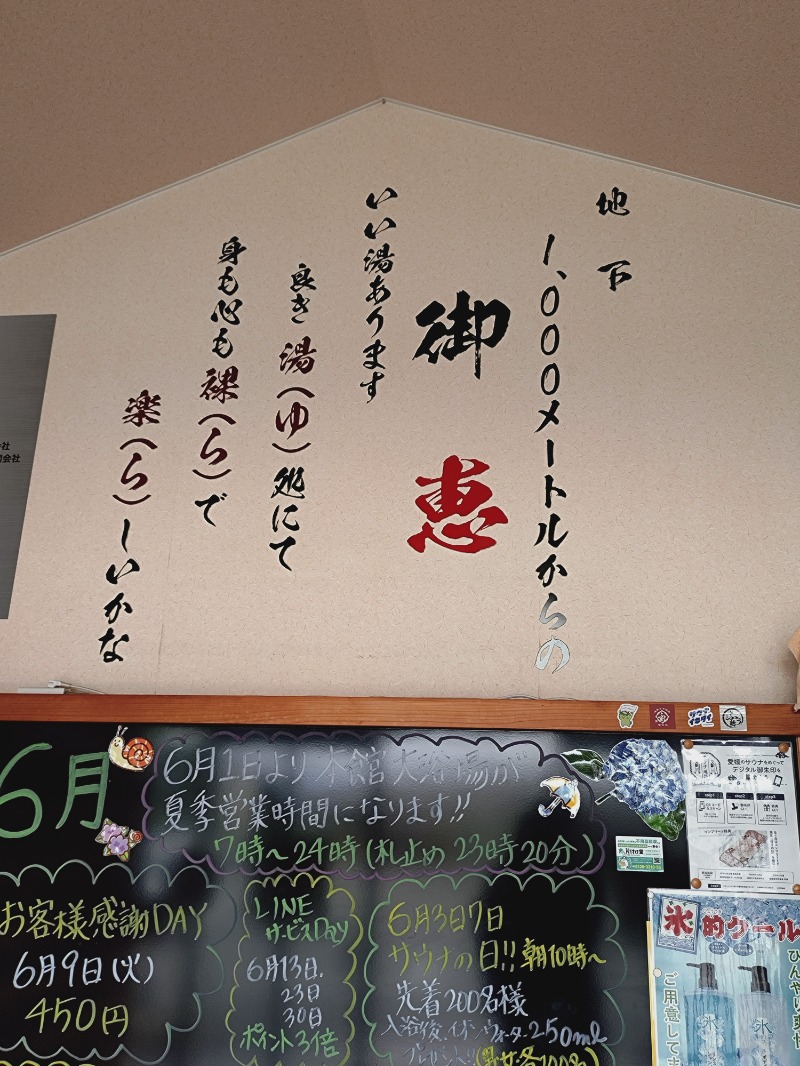 地下
1,000メートルからの
御恵
いい湯あります
良き湯(ゆ)処にて
身も心も裸(ら)で
楽(ら)しいかな
6月
6月1日より本館大浴場が
夏季営業時間になります!!
7時~24時(札止め23時20分)
お客様感謝DAY
6月9日(火)
450円
LINE
サービスDay
6月13日.
23日
30日
ポイント3倍
6月3日7日
サウナの日!!朝10時~
先着200名様
入浴後、イオンウォーター250ml
プレゼント!!(男女各100名)
愛媛のサウナをめぐって
デジタル御朱印を
氷的クール
ひんやり爽快
ご用意してま